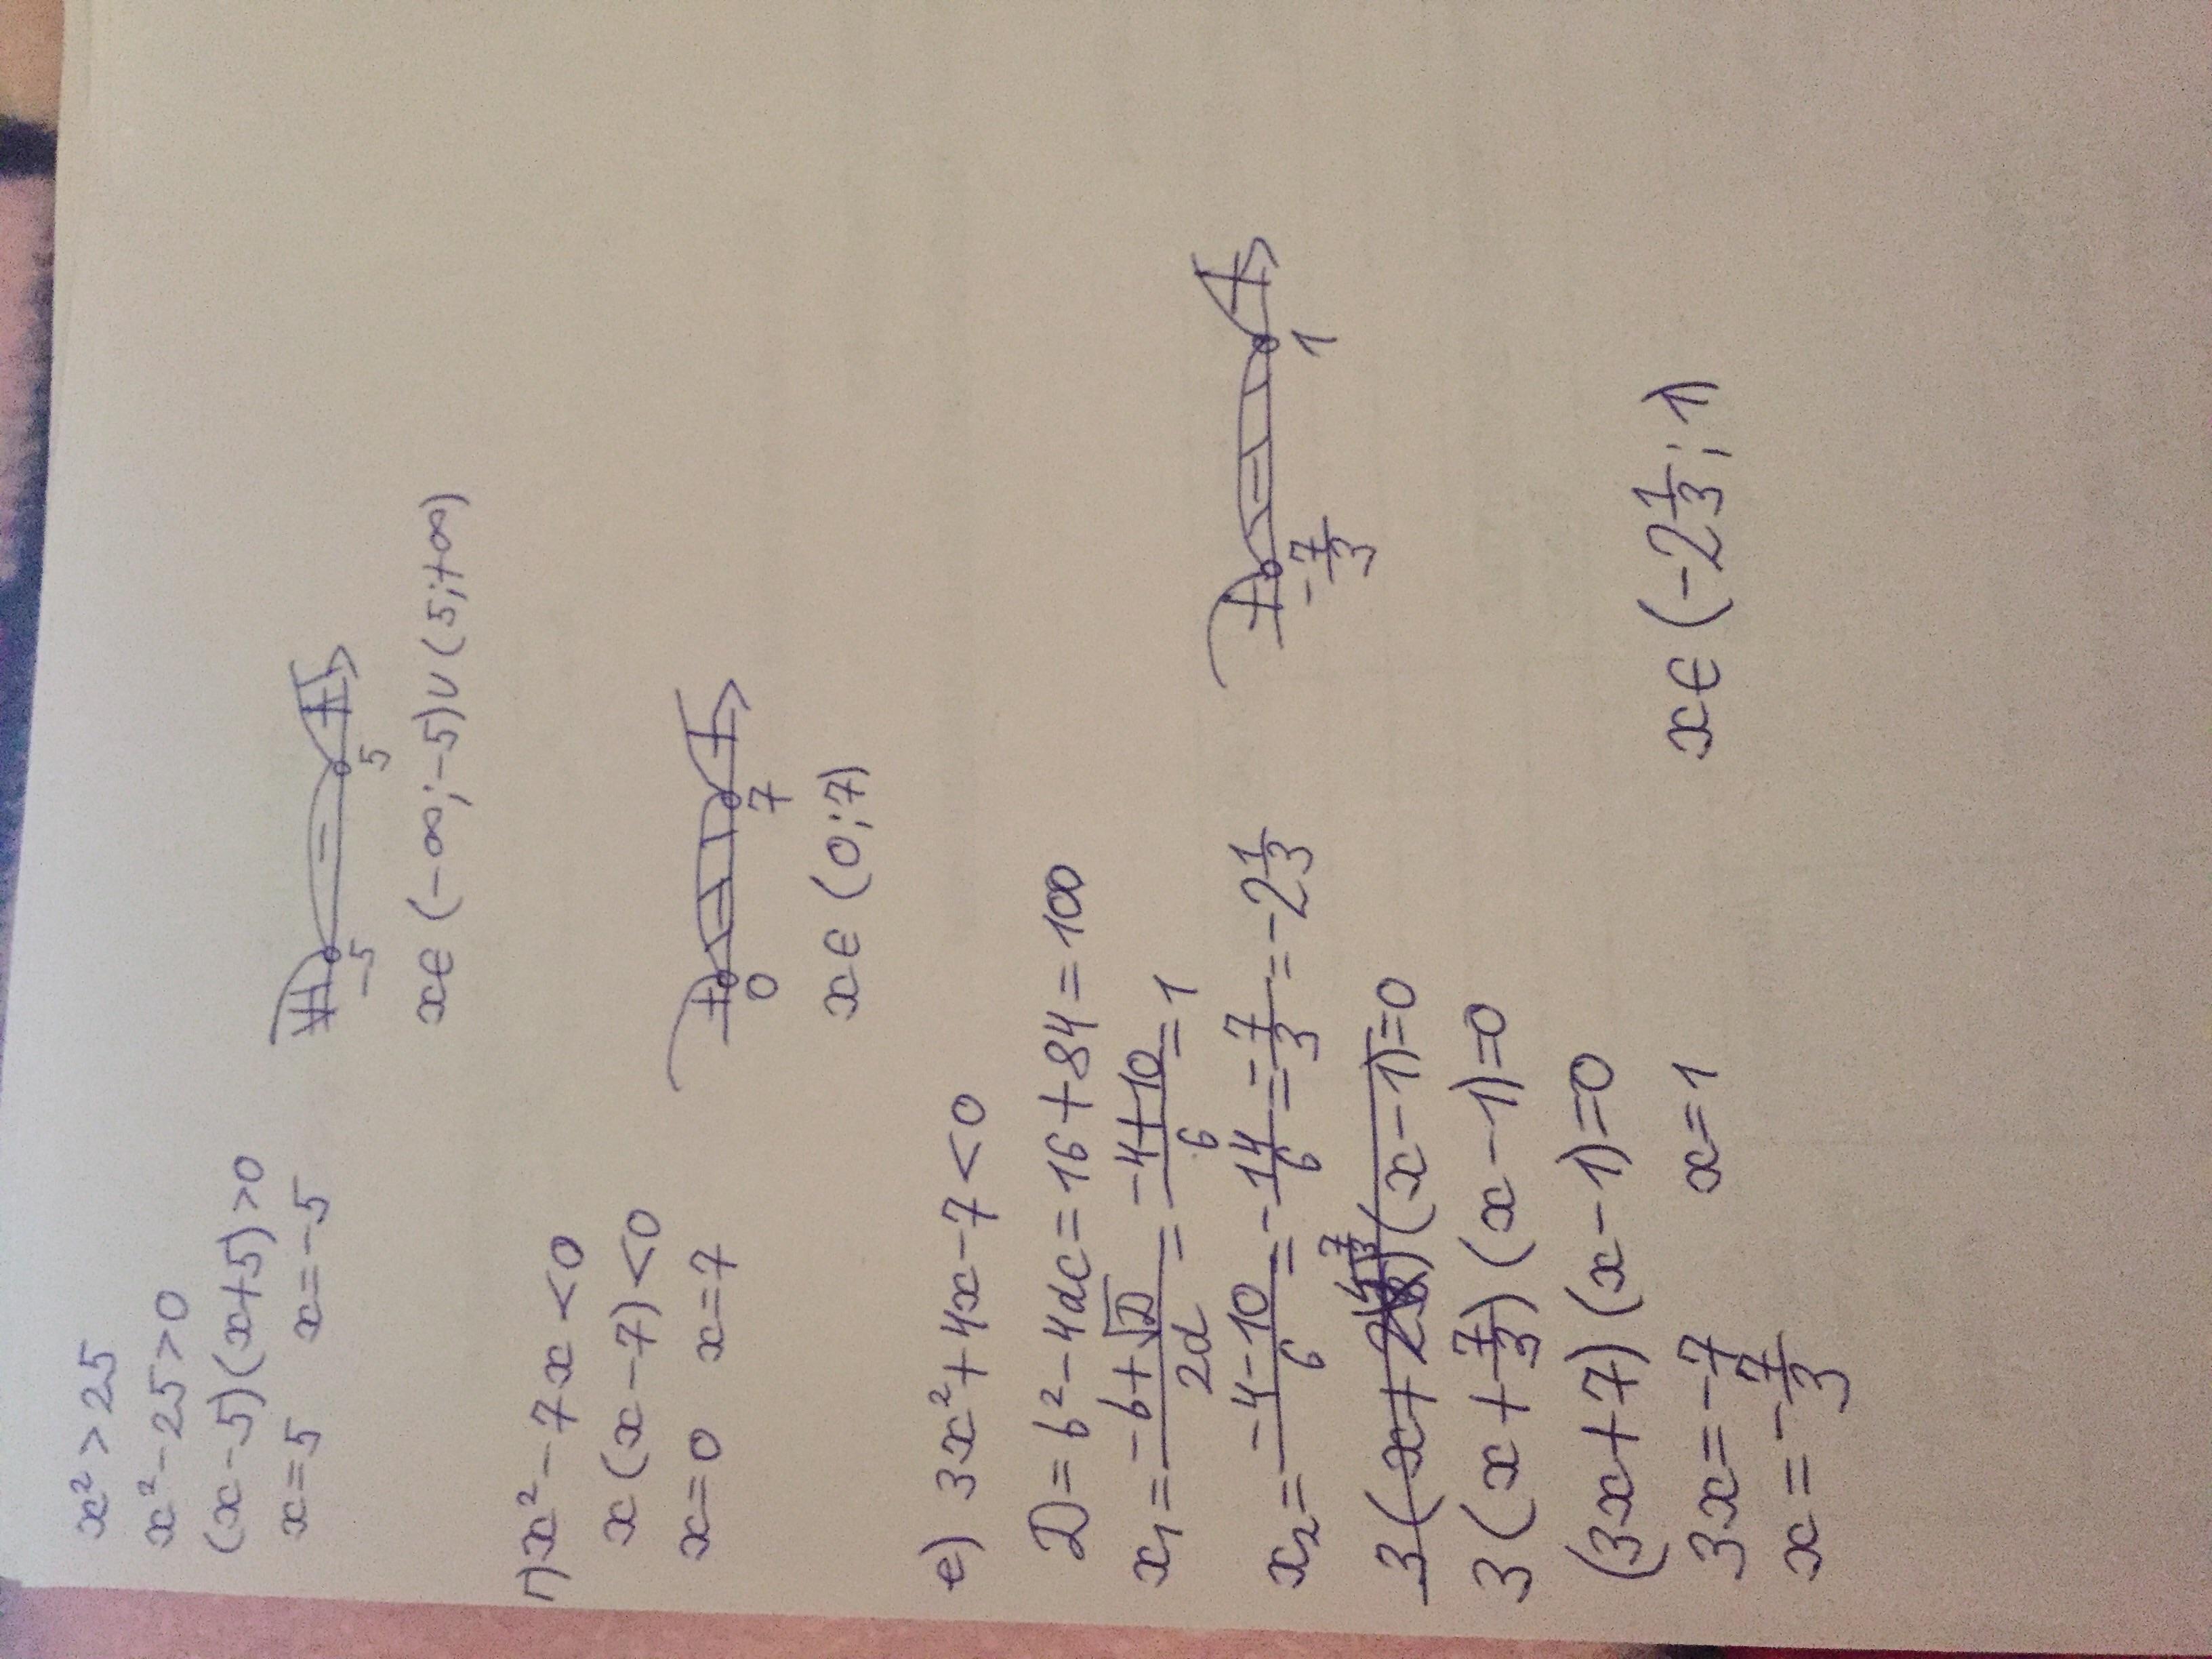 x² > 25
x² - 25 > 0
(x - 5)(x + 5) > 0
x = 5 x = -5
+ - +
-5 5
x ∈ (-∞; -5) ∪ (5; +∞)
г) x² - 7x < 0
x(x - 7) < 0
x = 0 x = 7
+ - +
0 7
x ∈ (0; 7)
е) 3x² + 4x - 7 < 0
D = b² - 4ac = 16 + 84 = 100
x₁ = (-b + √D)/2a = (-4 + 10)/6 = 1
x₂ = (-4 - 10)/6 = -14/6 = -7/3 = -2 1/3
+ - +
-7/3 1
3(x + (x - 1) = 0
3(x + 7/3)(x - 1) = 0
(3x + 7)(x - 1) = 0
3x = -7 x = 1
x = -7/3
x ∈ (-2 1/3; 1)